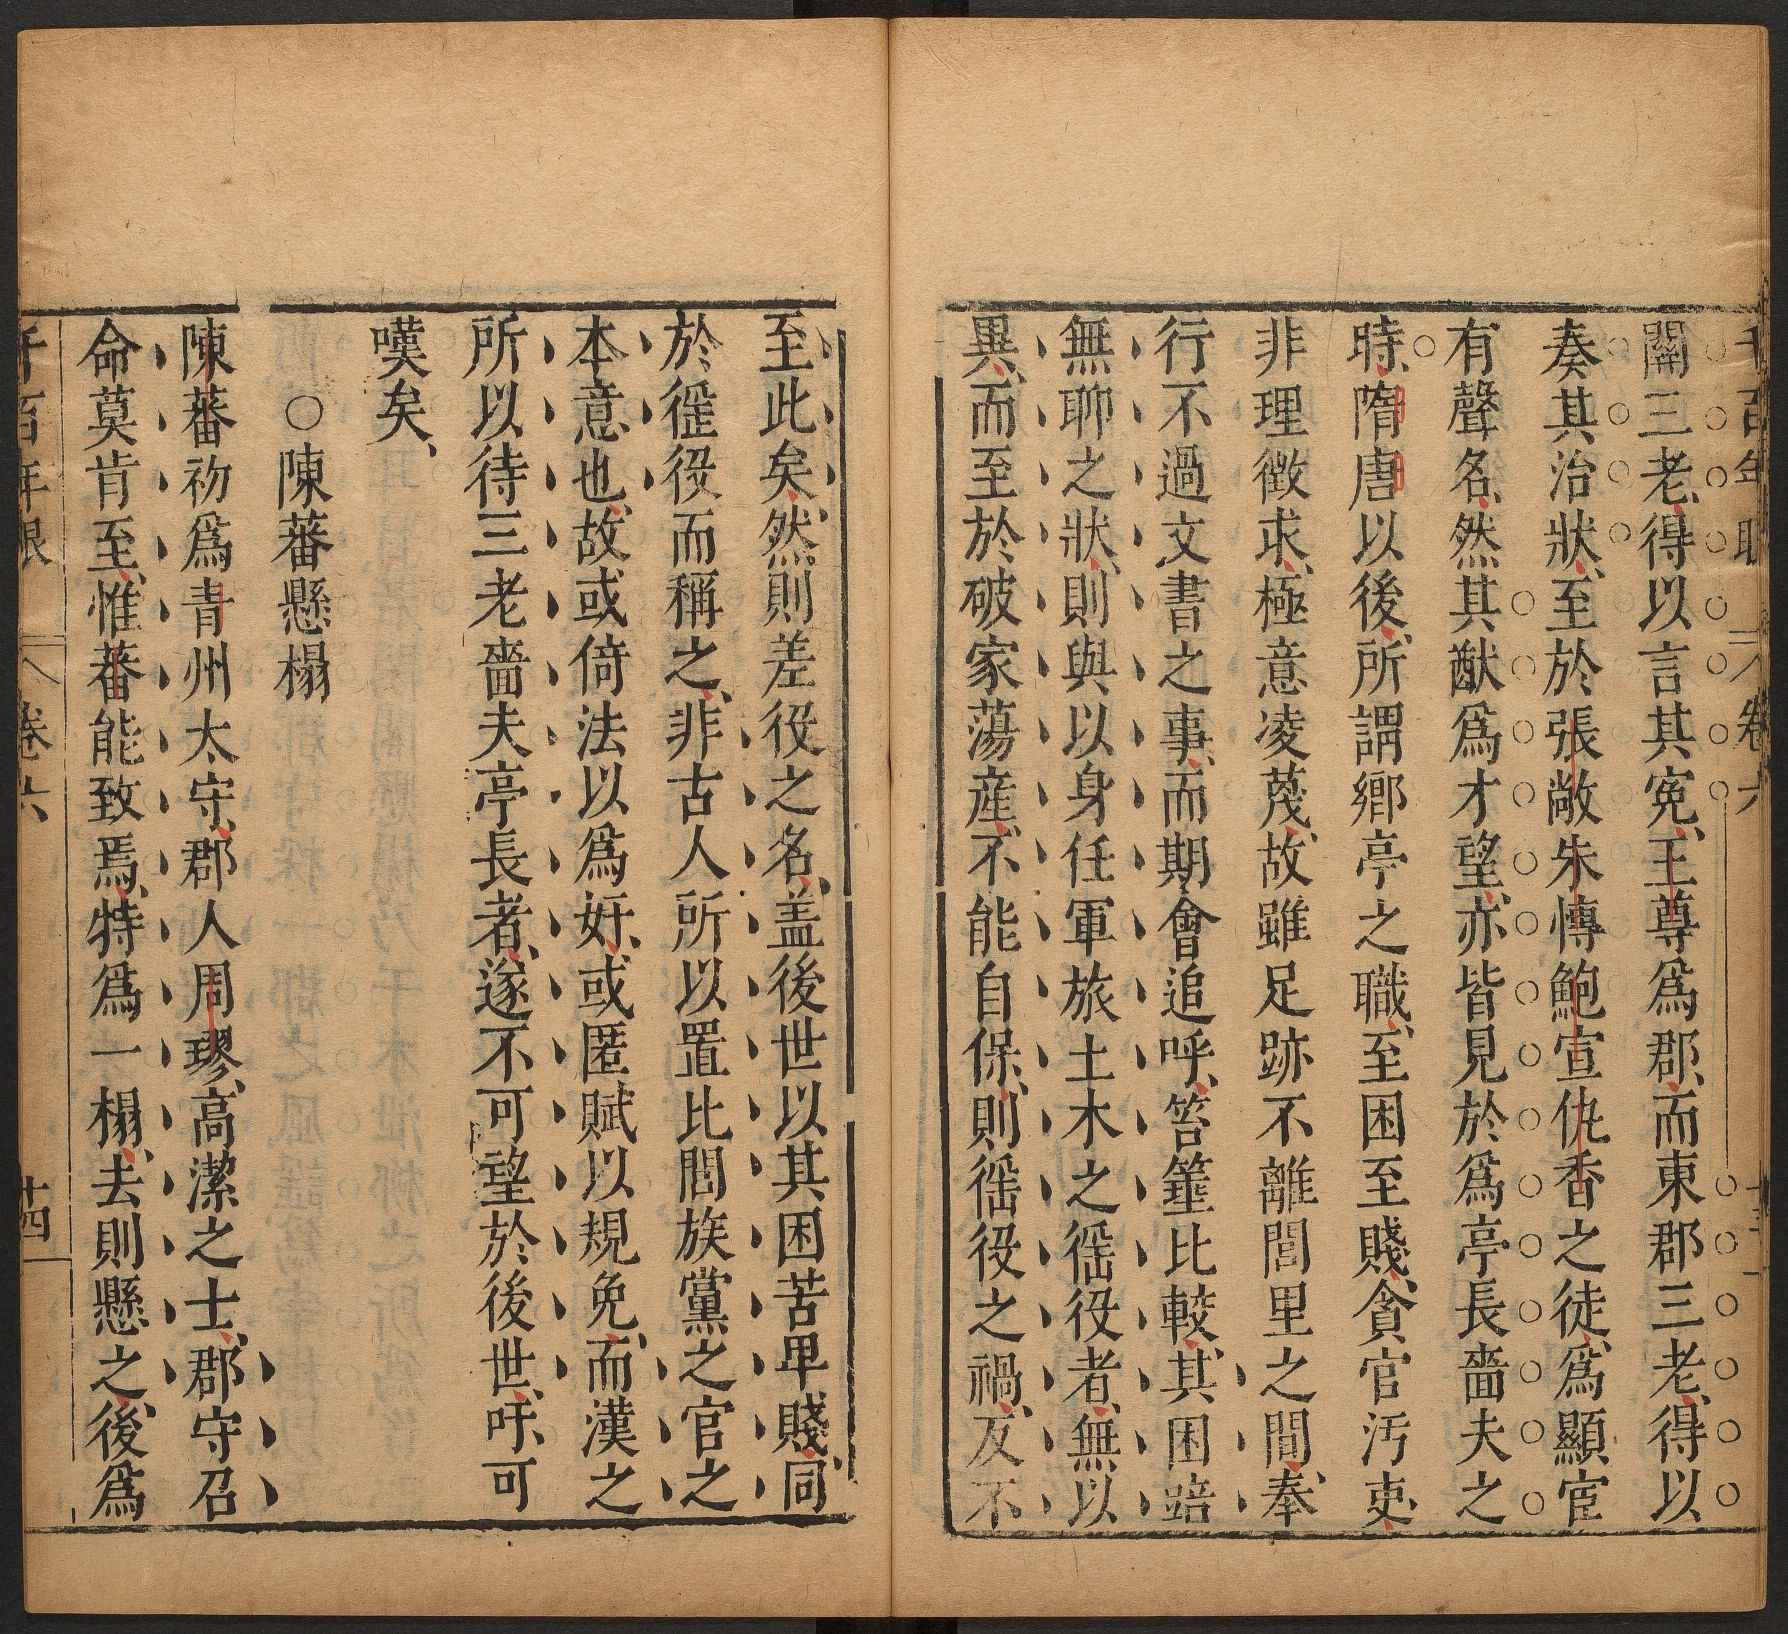 關三老、得以言其寃、王尊爲郡、而東郡三老、得以
奏其治狀、至於張敞朱慱鮑宣仇香之徒、爲顯宦
有聲名、然其猷爲才望、亦皆見於爲亭長嗇夫之
時、隋唐以後、所謂鄉亭之職、至困至賤、貪官汚吏、
非理徵求、極意凌蔑、故雖足跡不離閭里之間、奉
行不過文書之事、而期會追呼、笞箠比較、其困踣
無聊之狀、則與以身任軍旅土木之徭役者、無以
異、而至於破家蕩產、不能自保、則徭役之禍、反不
至此矣、然則差役之名、盖後世以其困苦卑賤、同
於徭役而稱之、非古人所以置比閭族黨之官之
本意也、故或倚法以爲奸、或匿賦以規免、而漢之
所以待三老嗇夫亭長者、遂不可望於後世、吁、可
嘆矣、
○陳蕃懸榻
陳蕃初爲青州太守、郡人周璆、高潔之士、郡守召
命莫肯至、惟蕃能致焉、特爲一榻、去則懸之、後爲
千百年眼 卷六 十四